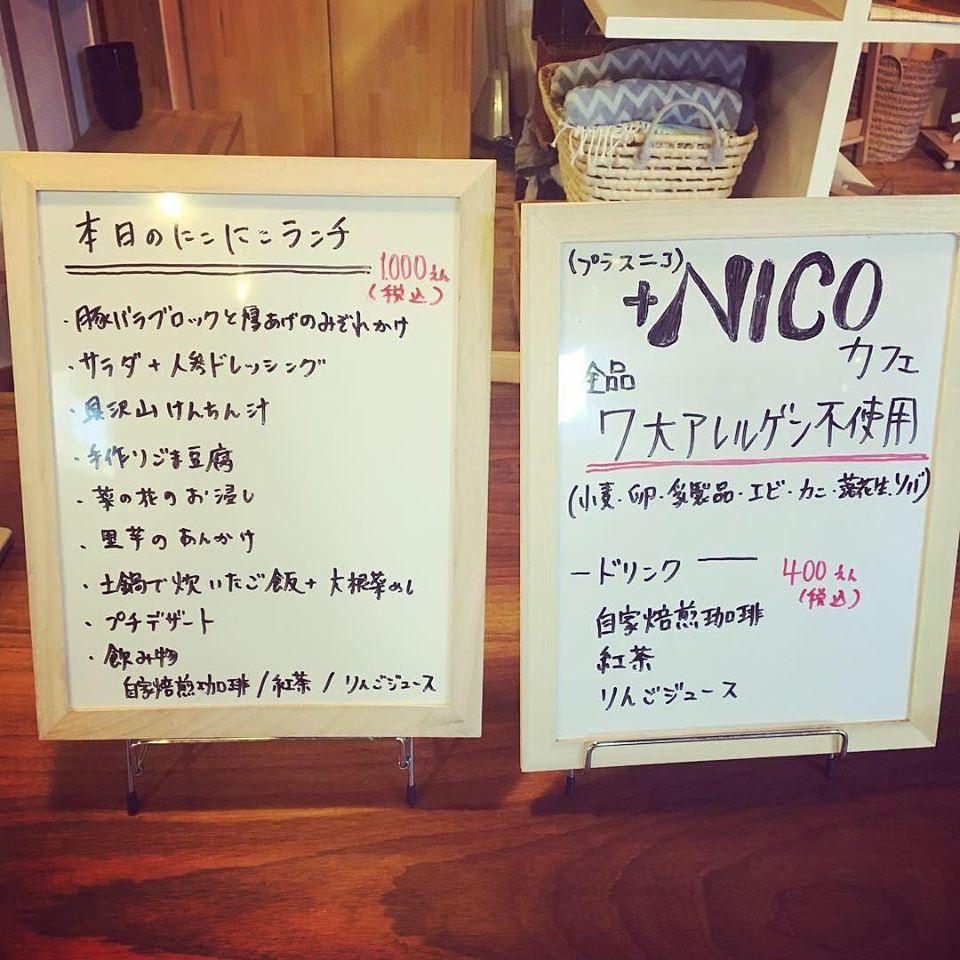 本日のにこにこランチ
1.000えん
(税込)
・豚バラブロックと厚あげのみぞれかけ
・サラダ+人参ドレッシング
・具沢山けんちん汁
・手作りごま豆腐
・菜の花のお浸し
・里芋のあんかけ
・土鍋で炊いたご飯+大根菜めし
・プチデザート
・飲み物
自家焙煎珈琲/紅茶/りんごジュース
(プラスニコ)
+NICO
カフェ
全品
7大アレルゲン不使用
(小麦・卵・乳製品・エビ・カニ・落花生・ソバ)
ードリンクー
400えん
(税込)
自家焙煎珈琲
紅茶
りんごジュース